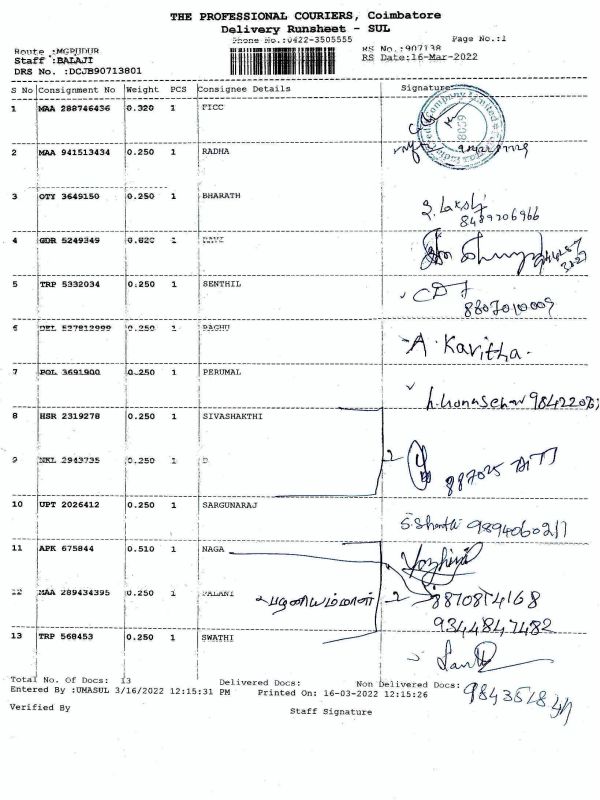 THE PROFESSIONAL COURIERS, Coimbatore
Delivery Runsheet - SUL
Phone No.:0422-3505555
Page No.:1
Route :MGPUDUR
RS No.:907138
Staff :BALAJI
RS Date:16-Mar-2022
DRS No. :DCJB90713801
S No Consignment No Weight PCS Consignee Details Signature
1 MAA 288746436 0.320 1 FICC
2 MAA 941513434 0.250 1 RADHA
3 OTY 3649150 0.250 1 BHARATH
8489206966
4 GDR 5249349 0.620 1 RAVI
5 TRP 5332034 0.250 1 SENTHIL
8807010009
6 DEL 527812999 0.250 1 RAGHU
A. Kavitha.
7 POL 3691900 0.250 1 PERUMAL
8 HSR 2319278 0.250 1 SIVASHAKTHI
9 NKL 2943735 0.250 1 D
2
10 UPT 2026412 0.250 1 SARGUNARAJ
11 APK 675844 0.510 1 NAGA
12 MAA 289434395 0.250 1 PALANI பழனியம்மாள் 2
8870874168
9344847482
13 TRP 568453 0.250 1 SWATHI
Total No. Of Docs: 13 Delivered Docs: Non Delivered Docs:
Entered By :UMASUL 3/16/2022 12:15:31 PM Printed On: 16-03-2022 12:15:26
Verified By
Staff Signature